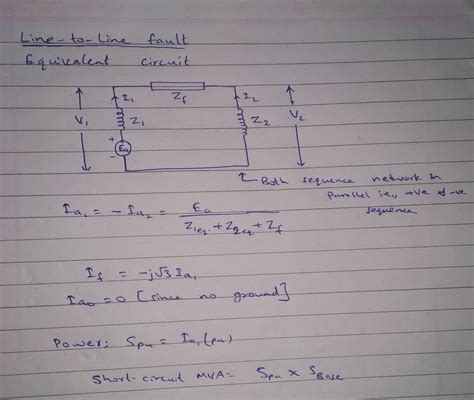 Line-to-Line fault
Equivalent circuit
I₁ Zf I₂
V₁ Z₁ Z₂ V₂
+
Ea
-
Both sequence network in
parallel i.e., +ve & -ve
sequence
Ia₁ = -Ia₂ = Ea / Z1eq. + Z2eq + Zf
If = -j√3 Ia₁
Iao = 0 [since no ground]
Power; Spu = Ia₁(pu)
Short-circuit MVA = Spu × SBase